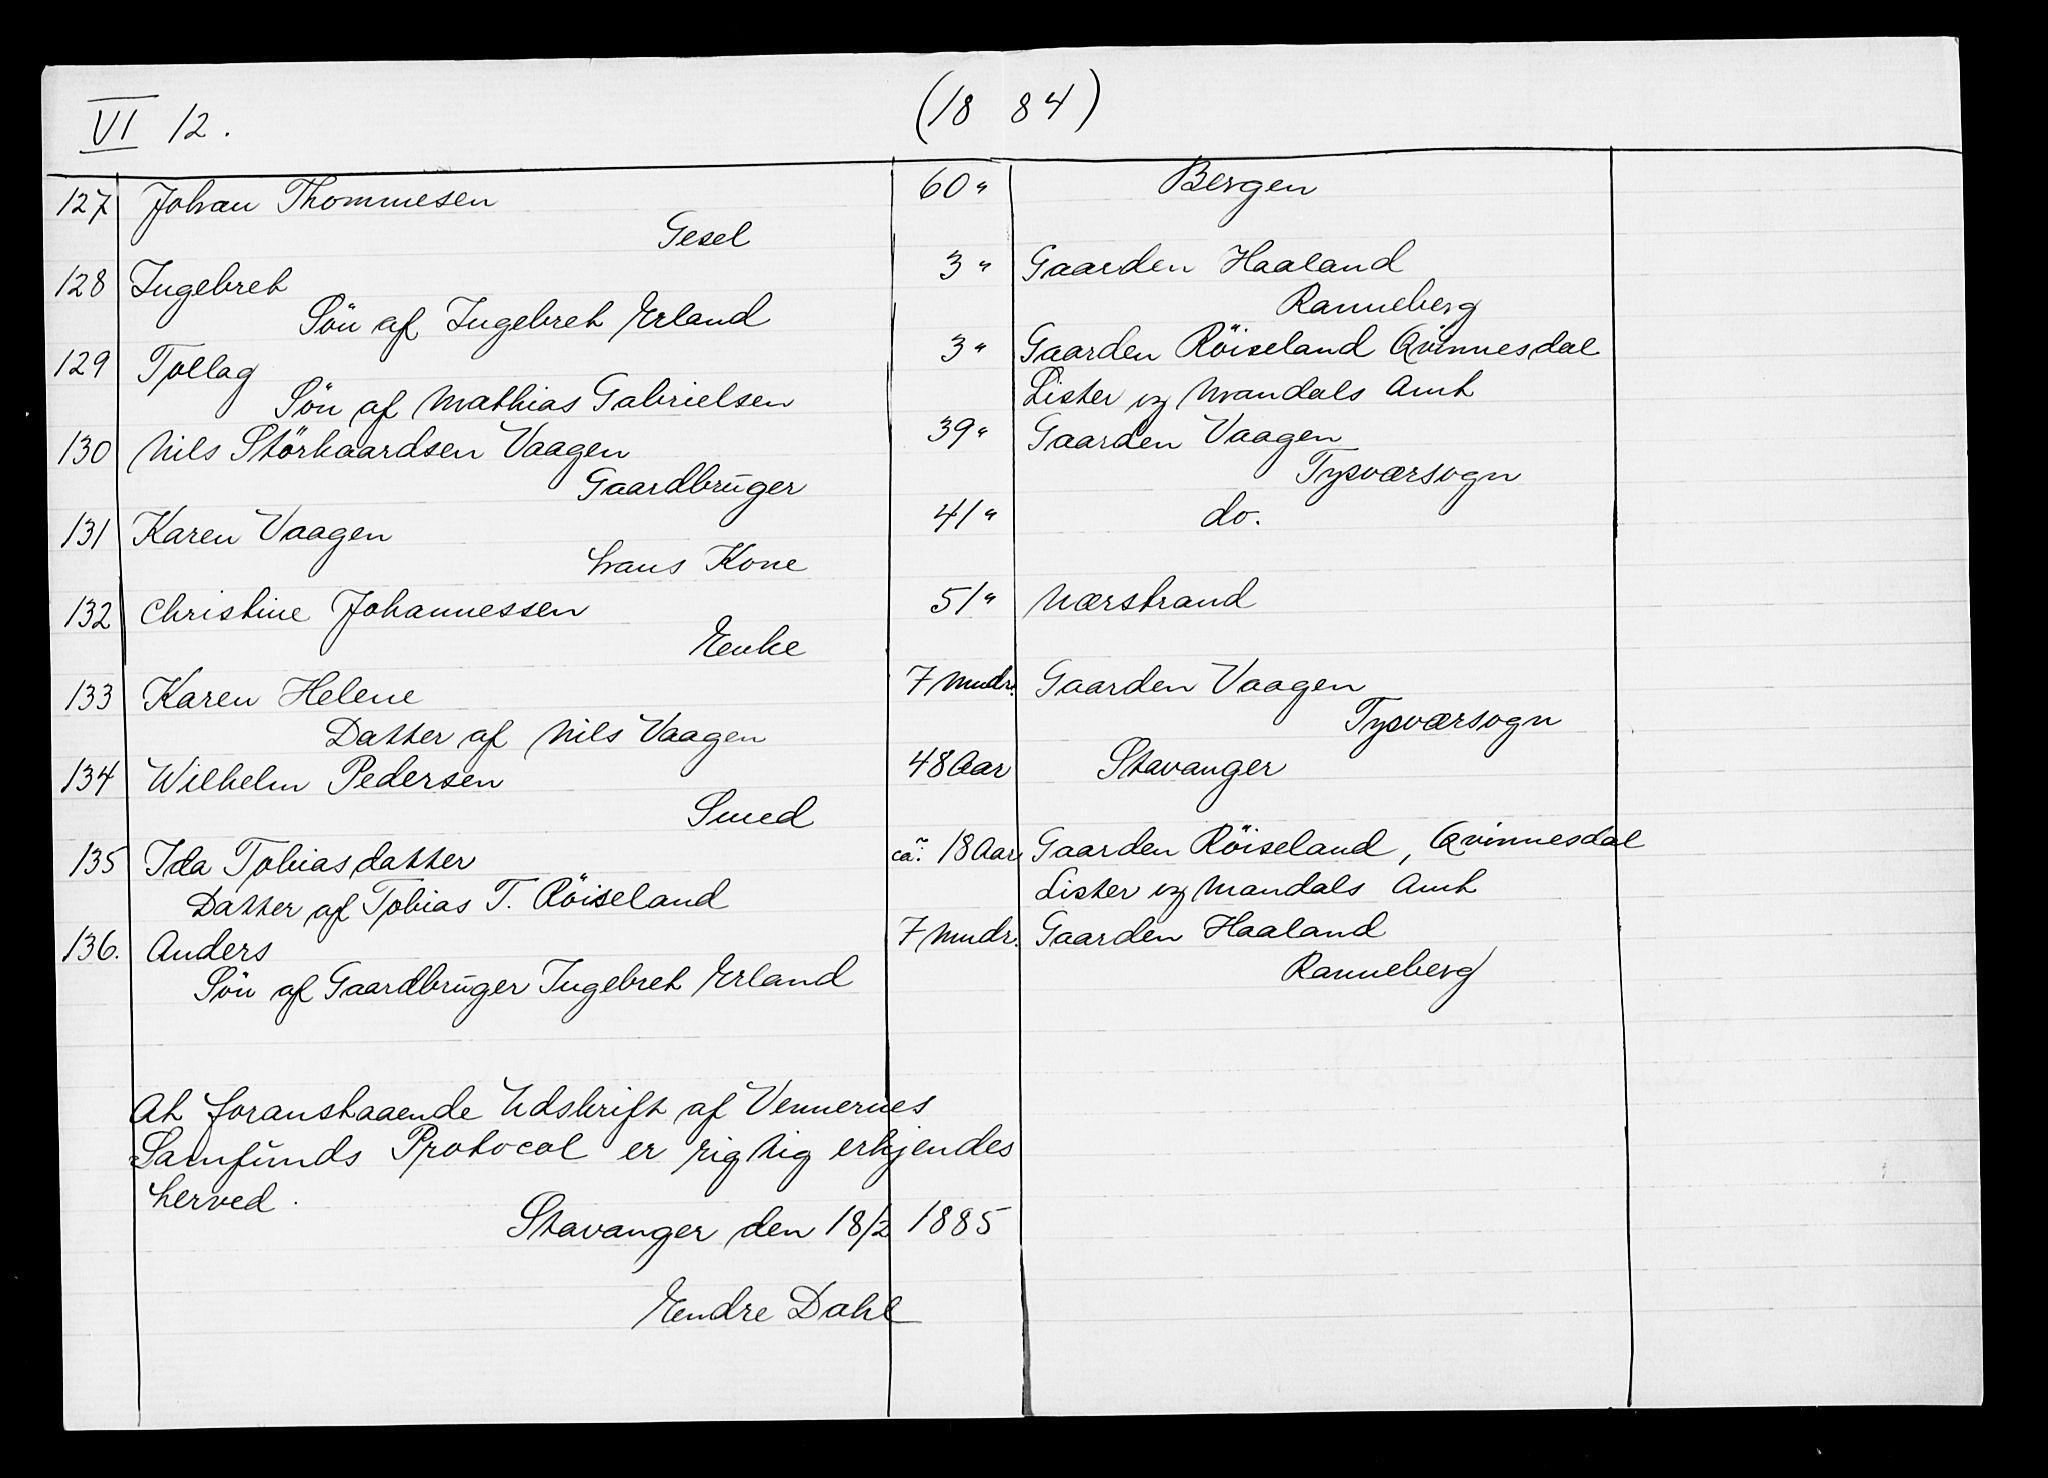 VI 12. (18 84)
127 Johan Thommesen 60 " Bergen
Gesel
128 Ingebret 3 " Gaarden Haaland
Sön af Ingebret Erland Ranneberg
129 Tollag 3 " Gaarden Röiseland Qvinnesdal
Sön af Mathias Gabrielsen Lister og Mandals Amt
130 Nils Störkaardsen Vaagen 39 " Gaarden Vaagen
Gaardbruger Tysværsogn
131 Karen Vaagen 41 " do.
hans Kone
132 Christine Johannessen 51 " Nærstrand
Enke
133 Karen Helene 7 Mndr. Gaarden Vaagen
Datter af Nils Vaagen Tysværsogn
134 Wilhelm Pedersen 48 Aar Stavanger
Smed
135 Ida Tobiasdatter ca. 18 Aar Gaarden Röiseland, Qvinnesdal
Datter af Tobias T. Röiseland Lister og Mandals Amt
136. Anders 7 Mndr. Gaarden Haaland
Sön af Gaardbruger Ingebret Erland Ranneberg
At foranstaaende Udskrift af Vennernes
Samfunds Protocol er rigtig erkjendes
herved.
Stavanger den 18/2 1885
Endre Dahl